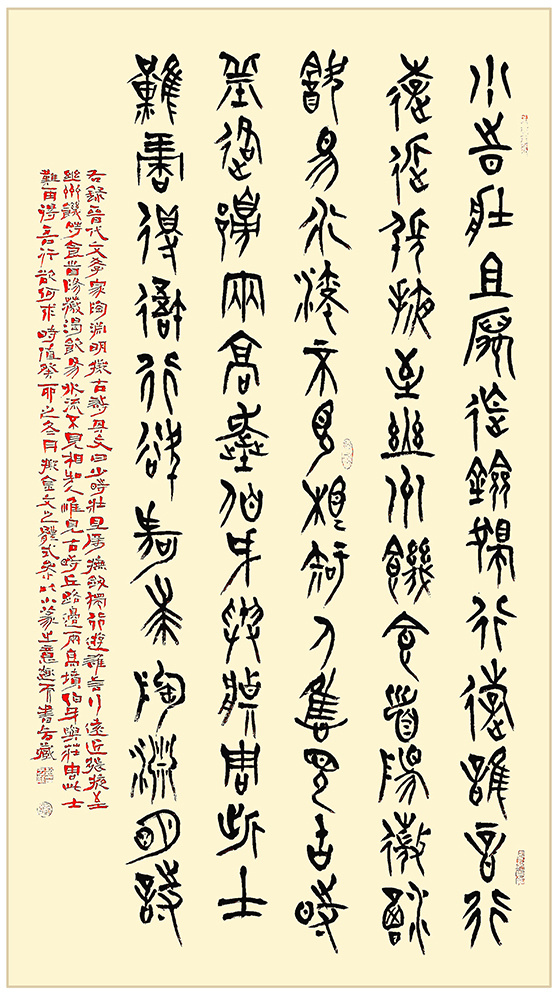 少時壯且厲撫劍獨行遊誰言行
遊近張掖至幽州饑食首陽薇渴
飲易水流不見相知人惟見古時
丘路邊兩高墳伯牙與莊周此士
難再得吾行欲何求陶淵明詩
右錄晉代文學家陶淵明擬古詩其文曰少時壯且厲撫劍獨行遊誰言行遠近張掖至
幽州饑食首陽薇渴飲易水流不見相知人惟見古時丘路邊兩高墳伯牙與莊周此士
難再得吾行欲何求時值癸卯之冬月擬金文之體式參以小篆之意趣而書